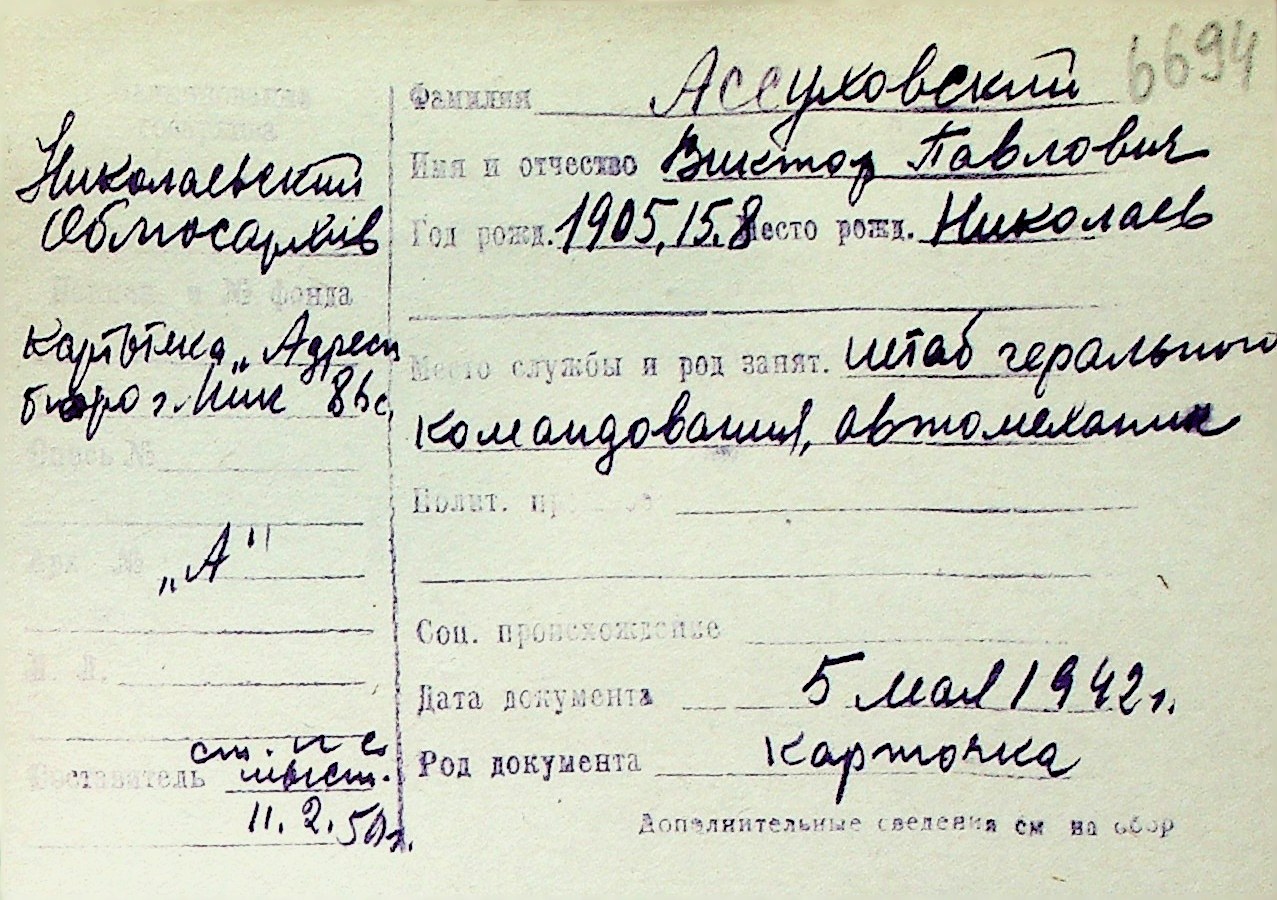 6694
Фамилия Ассуховский
Имя и отчество Виктор Павлович
Год рожд. 1905,15.8 Место рожд. Николаев
Место службы и род занят. штаб герального
командования, автомеханик
Полит.
Соц. происхождение
Дата документа 5 мая 1942 г.
Род документа Карточка
Дополнительные сведения см на обор
Николаевский
Облгосархив
и № фонда
Картотека „Адресн
бюро г. Ник
Опись №
Арх №
„А"
Составитель
11.2.50 г.